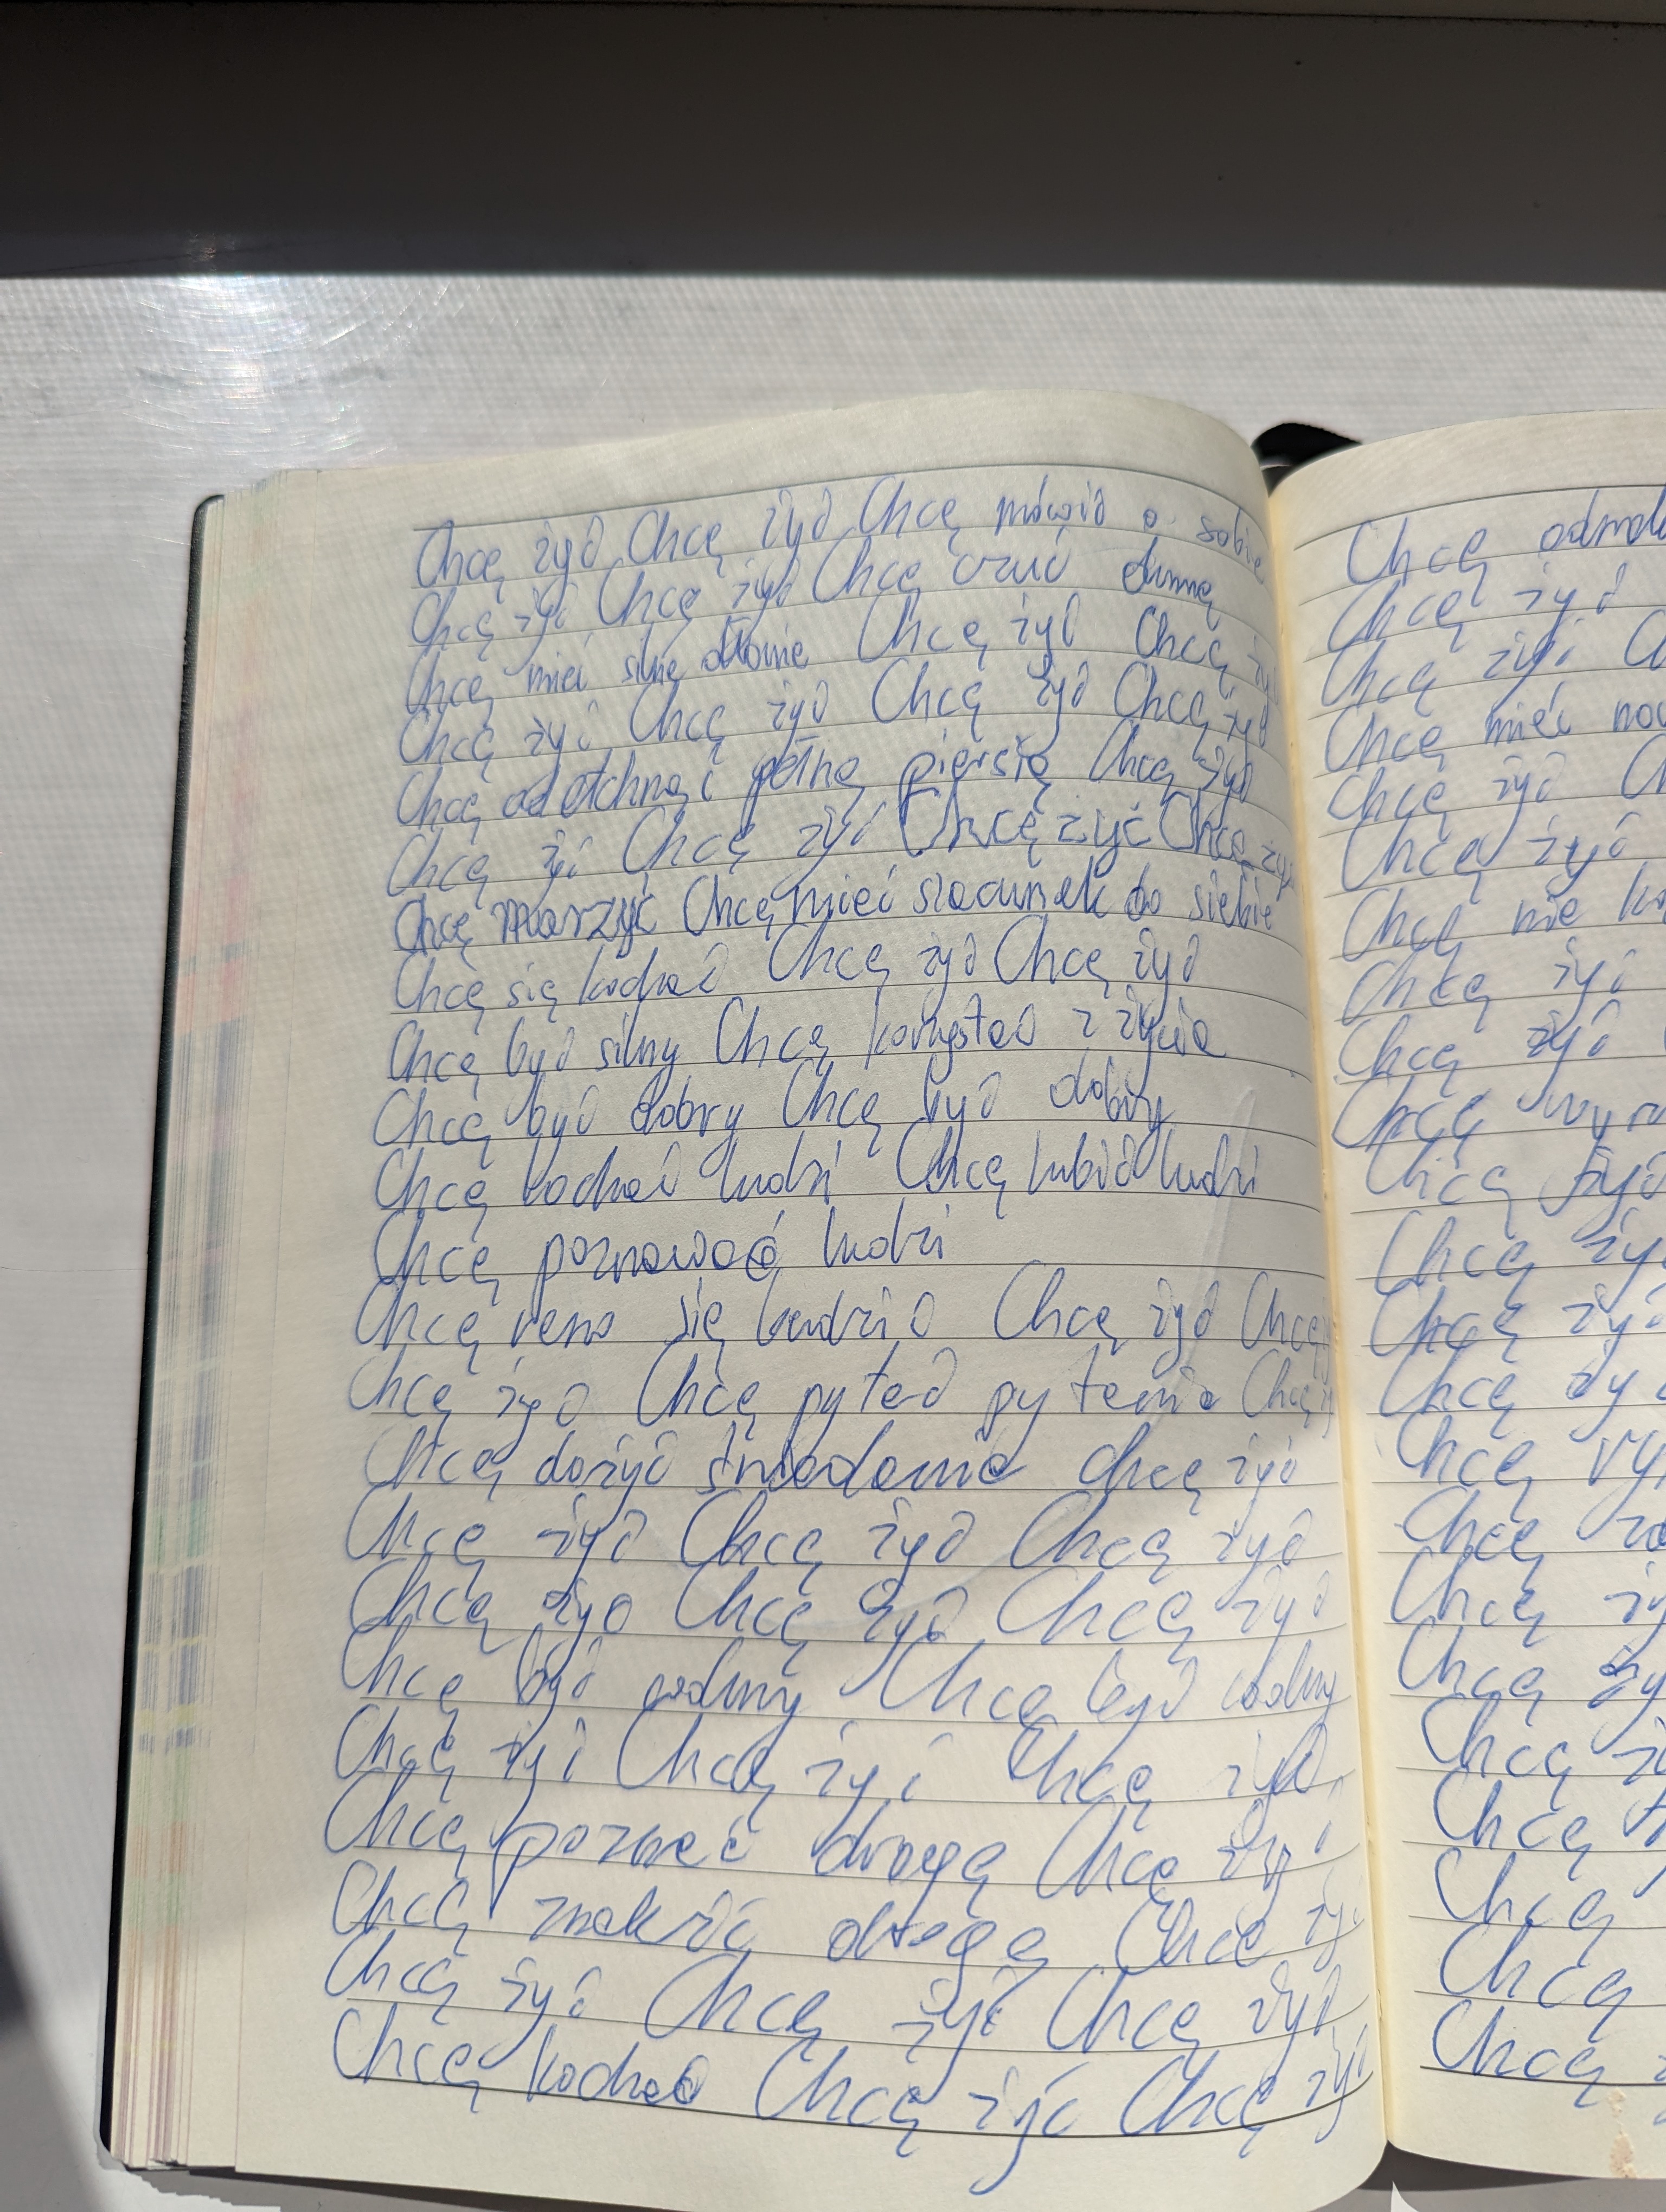 Chcę żyć Chcę żyć Chcę mówić o sobie
Chcę żyć Chcę żyć Chcę czuć dumę
Chcę mieć silne dłonie Chcę żyć Chcę
Chcę żyć Chcę żyć Chcę żyć Chcę żyć
Chcę odetchnąć pełną piersią Chcę żyć
Chcę żyć Chcę żyć Chcę żyć Chcę żyć
Chcę marzyć Chcę mieć szacunek do siebie
Chcę się kochać Chcę żyć Chcę żyć
Chcę być silny Chcę korzystać z życia
Chcę być dobry Chcę być dobry
Chcę kochać ludzi Chcę lubić ludzi
Chcę poznawać ludzi
Chcę rano się budzić Chcę żyć Chcę
Chcę żyć Chcę pytać pytania Chcę
Chcę dożyć śniadania Chcę żyć
Chcę żyć Chcę żyć Chcę żyć
Chcę żyć Chcę żyć Chcę żyć
Chcę być wolny Chcę być wolny
Chcę żyć Chcę żyć Chcę żyć
Chcę poznać drogę Chcę żyć
Chcę znaleźć drogę Chcę żyć
Chcę żyć Chcę żyć Chcę żyć
Chcę kochać Chcę żyć Chcę żyć
Chcę
Chcę żyć
Chcę żyć
Chcę mieć
Chcę żyć
Chcę żyć
Chcę nie
Chcę żyć
Chcę żyć
Chcę
Chcę żyć
Chcę
Chcę
Chcę
Chcę
Chcę
Chcę
Chcę
Chcę
Chcę
Chcę
Chcę
Chcę